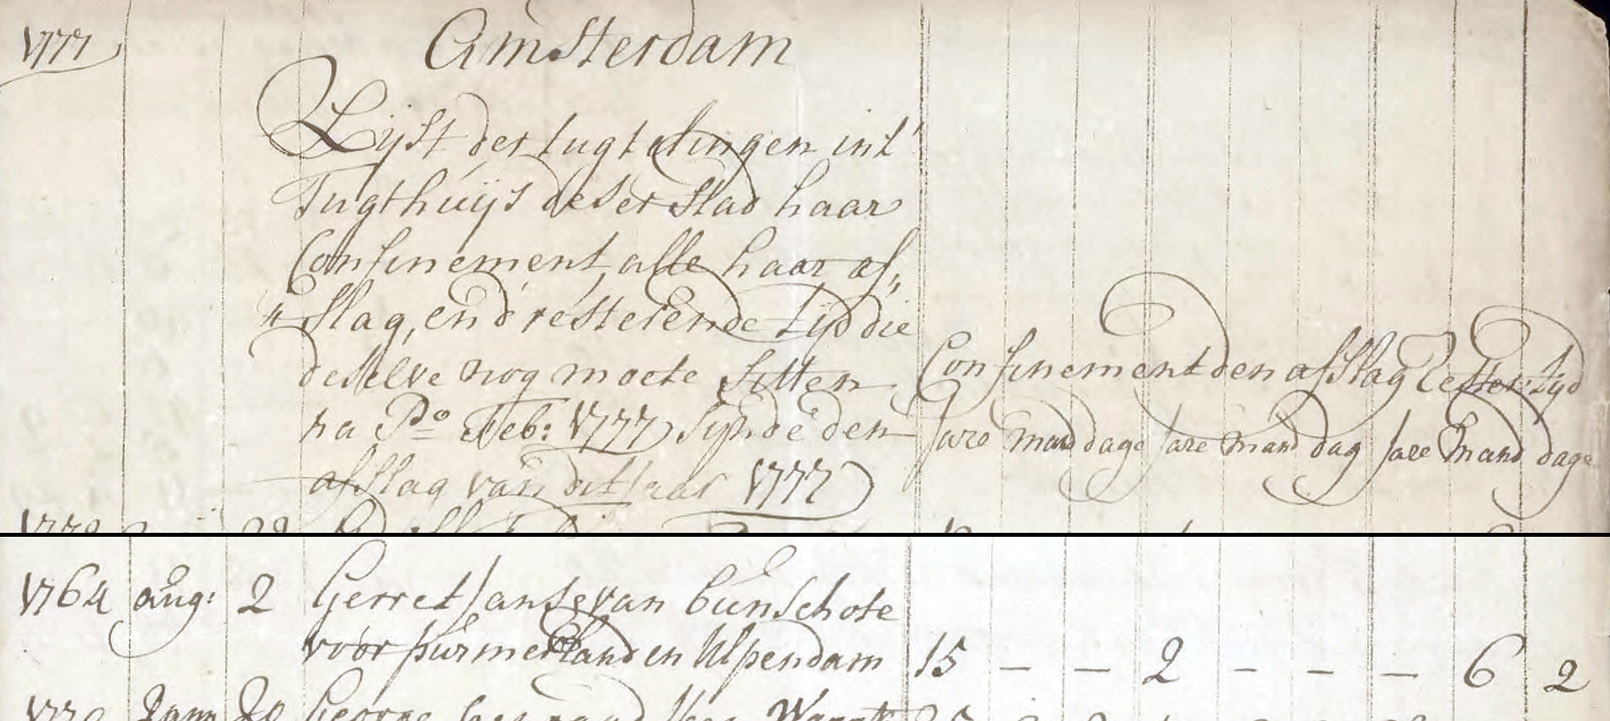 1777
Amsterdam
Lijst der tugtelingen int'
Tugthuijs deser stad haar
Confinement, alle haar af„
„slag, en d'resterende tijd die
deselve nog moete sitten
na P.o Feb: 1777 sijnde den
afslag van dit Jaar 1777
Confinement den afslag Rester: tijd
Jare maand dage Jare maand dag Jare maand dage
1764 aug: 2 Gerret Janse van Bunschote
voor purmerland en Ilpendam 15 – – 2 – – – 6 2